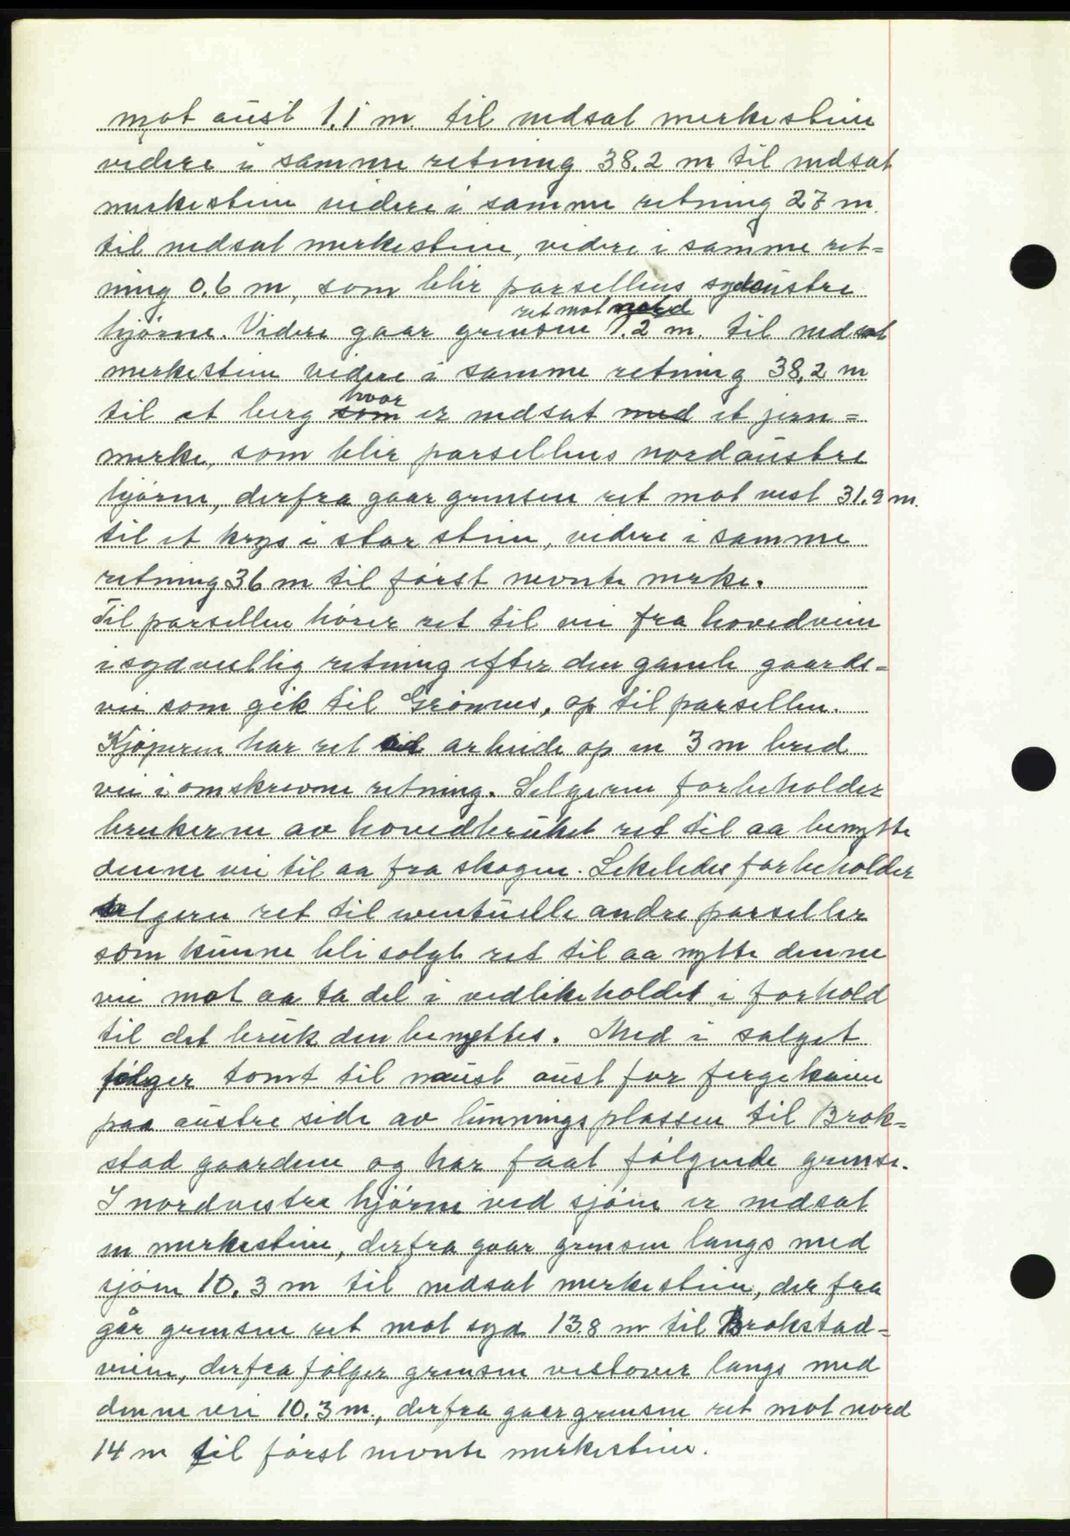 mot aust 1.1 m. til nedsat merkestein
videre i samme retning 38.2 m til nedsat
merkestein videre i samme retning 27 m.
til nedsat merkestein, videre i samme ret=
ning 0.6 m, som blir parsellens sydaustre
ret mot nord
hjørne. Videre gaar grensen 1.2 m. til nedsat
merkestein videre i samme retning 38,2 m
hvor
til et berg som er nedsat med et jern=
merke, som blir parsellens nordaustre
hjørne, derfra gaar grensen ret mot vest 31.9 m.
til et krys i stor stein, videre i samme
retning 36 m til først nevnte merke.
Til parsellen hører ret til vei fra hovedveien
i sydvestlig retning efter den gamle gaards=
vei som gik til Grønnes, op til parsellen.
Kjøperen har ret til arbeide op en 3 m bred
vei i omskrevne retning. Selgeren forbeholder
brukerne av hovedbruket ret til aa benytte
denne vei til aa fra skogen. Likeledes forbeholder
selgeren ret til eventuelle andre parseller
som kunne bli solgt ret til aa nytte denne
vei mot aa ta del i vedlikeholdet i forhold
til det bruk den benyttes. Med i salget
følger tomt til naust aust for fergekaien
paa austre side av lunningsplassen til Brok=
stad gaardene og har faat følgende grense.
I nordvestre hjørne ved sjøen er nedsat
en merkestein, derfra gaar grensen langs med
sjøen 10.3 m til nedsat merkestein, derfra
går grensen ret mot syd 13.8 m til Brokstad=
veien, derfra følger grensen vestover langs med
denne vei 10.3 m., derfra gaar grensen ret mot nord
14 m til først nevnte merkestein.